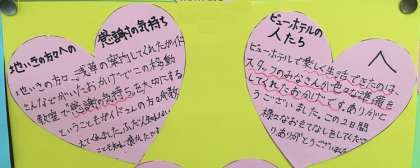 地いきの方々への
感謝の気持ち
地いきの方々、浅草の案内してくれたガイド
さんなどがいたおかげでこの移動
教室で感謝の気持ちを大切にする
ということもガイドさんの方々
ビューホテルの
人たちへ
ビューホテルで楽しく生活できたのは、
スタッフのみなさんが色々な準備を
してくれたおかげです。ありがと
うございました。この2日間
様々なおもてなしをしてくださ
りありがとうござい